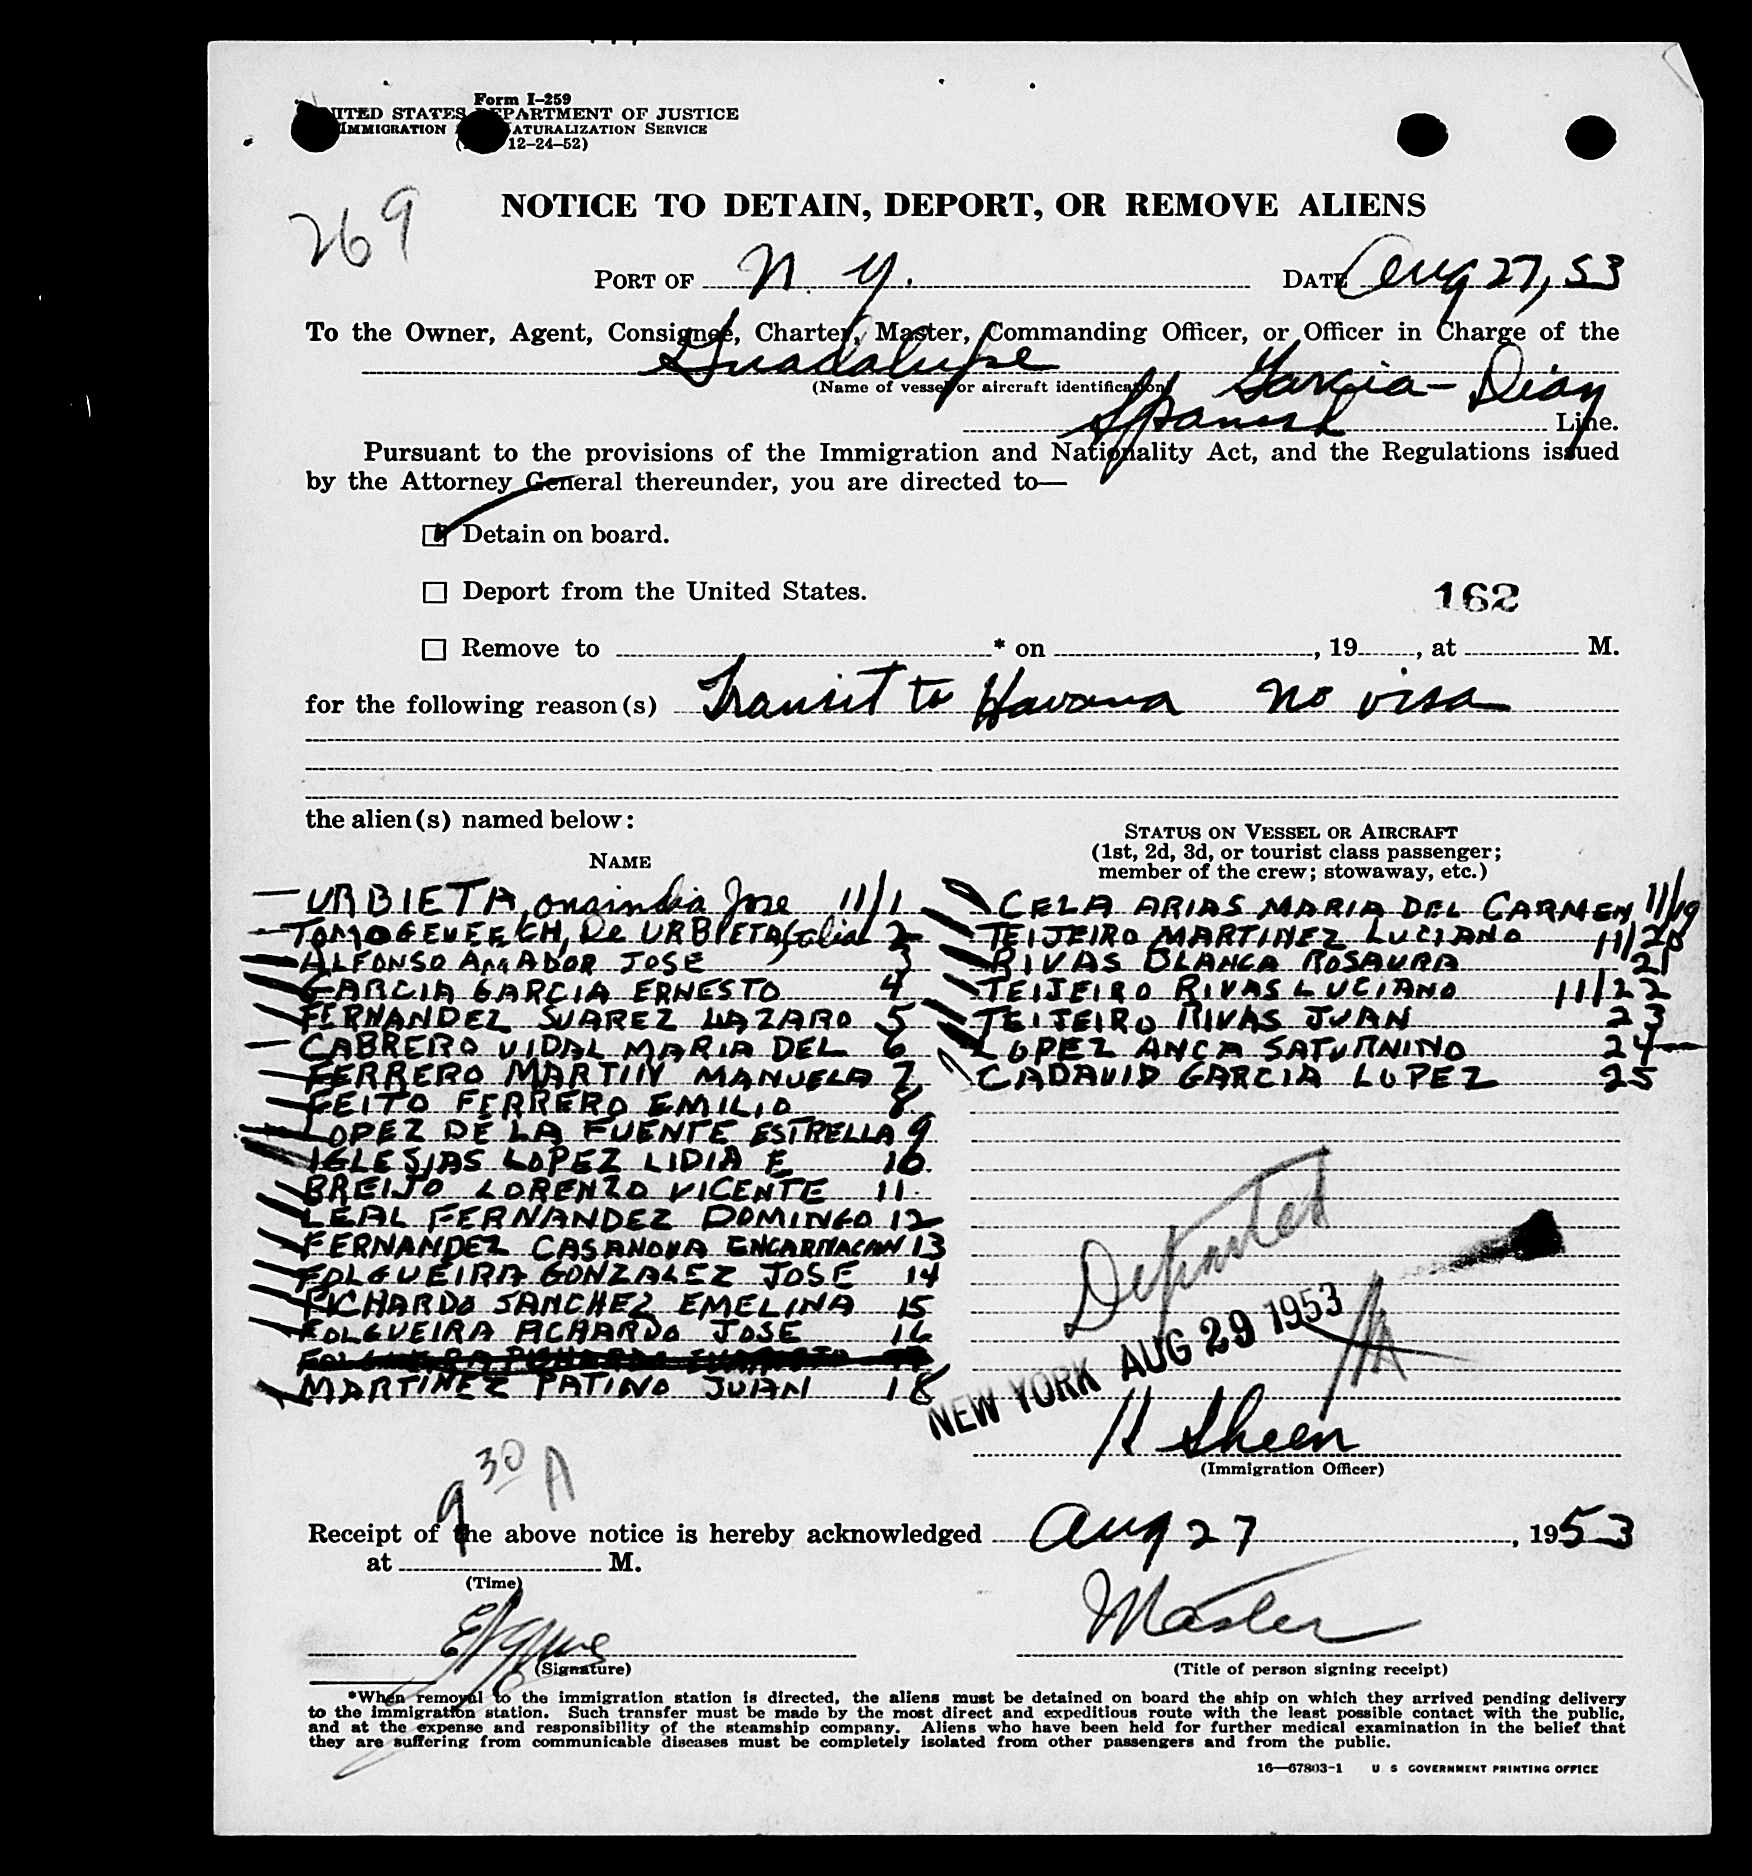 Form I-259
UNITED STATES DEPARTMENT OF JUSTICE
IMMIGRATION NATURALIZATION SERVICE
12-24-52)
269
NOTICE TO DETAIN, DEPORT, OR REMOVE ALIENS
PORT OF N. Y. DATE Aug 27, 53
To the Owner, Agent, Consignee, Charter, Master, Commanding Officer, or Officer in Charge of the
Guadalupe
(Name of vessel or aircraft identification) Garcia-Diaz
Spanish Line.
Pursuant to the provisions of the Immigration and Nationality Act, and the Regulations issued
by the Attorney General thereunder, you are directed to—
Detain on board.
Deport from the United States.
162
Remove to * on , 19 , at M.
for the following reason(s) Transit to Havana no visa
the alien(s) named below:
STATUS ON VESSEL OR AIRCRAFT
(1st, 2d, 3d, or tourist class passenger;
member of the crew; stowaway, etc.)
NAME
URBIETA, Jose 11/1
De URBIETA 2
ALFONSO AMADOR JOSE 3
GARCIA GARCIA ERNESTO 4
FERNANDEZ SUAREZ LAZARO 5
CABRERO VIDAL MARIA DEL 6
FERRERO MARTIN MANUELA 7
FEITO FERRERO EMILIO 8
LOPEZ DE LA FUENTE ESTRELLA 9
IGLESIAS LOPEZ LIDIA E 10
BREIJO LORENZO VICENTE 11
LEAL FERNANDEZ DOMINGO 12
FERNANDEZ CASANOVA 13
FOLGUEIRA GONZALEZ JOSE 14
PICHARDO SANCHEZ EMELINA 15
FOLGUEIRA JOSE 16
MARTINEZ PATINO JUAN 18
CELA ARIAS MARIA DEL CARMEN 11/19
TEIJEIRO MARTINEZ LUCIANO 11/20
RIVAS BLANCA ROSAURA 21
TEIJEIRO RIVAS LUCIANO 11/22
TEIJEIRO RIVAS JUAN 23
LOPEZ ANCA SATURNINO 24
CADAVID GARCIA LOPEZ 25
Departed
NEW YORK AUG 29 1953
H Sheen
(Immigration Officer)
9 30 A
Receipt of the above notice is hereby acknowledged Aug 27, 1953
at M.
(Time)
Master
(Signature)
(Title of person signing receipt)
*When removal to the immigration station is directed, the aliens must be detained on board the ship on which they arrived pending delivery
to the immigration station. Such transfer must be made by the most direct and expeditious route with the least possible contact with the public,
and at the expense and responsibility of the steamship company. Aliens who have been held for further medical examination in the belief that
they are suffering from communicable diseases must be completely isolated from other passengers and from the public.
16—67803-1 U S GOVERNMENT PRINTING OFFICE